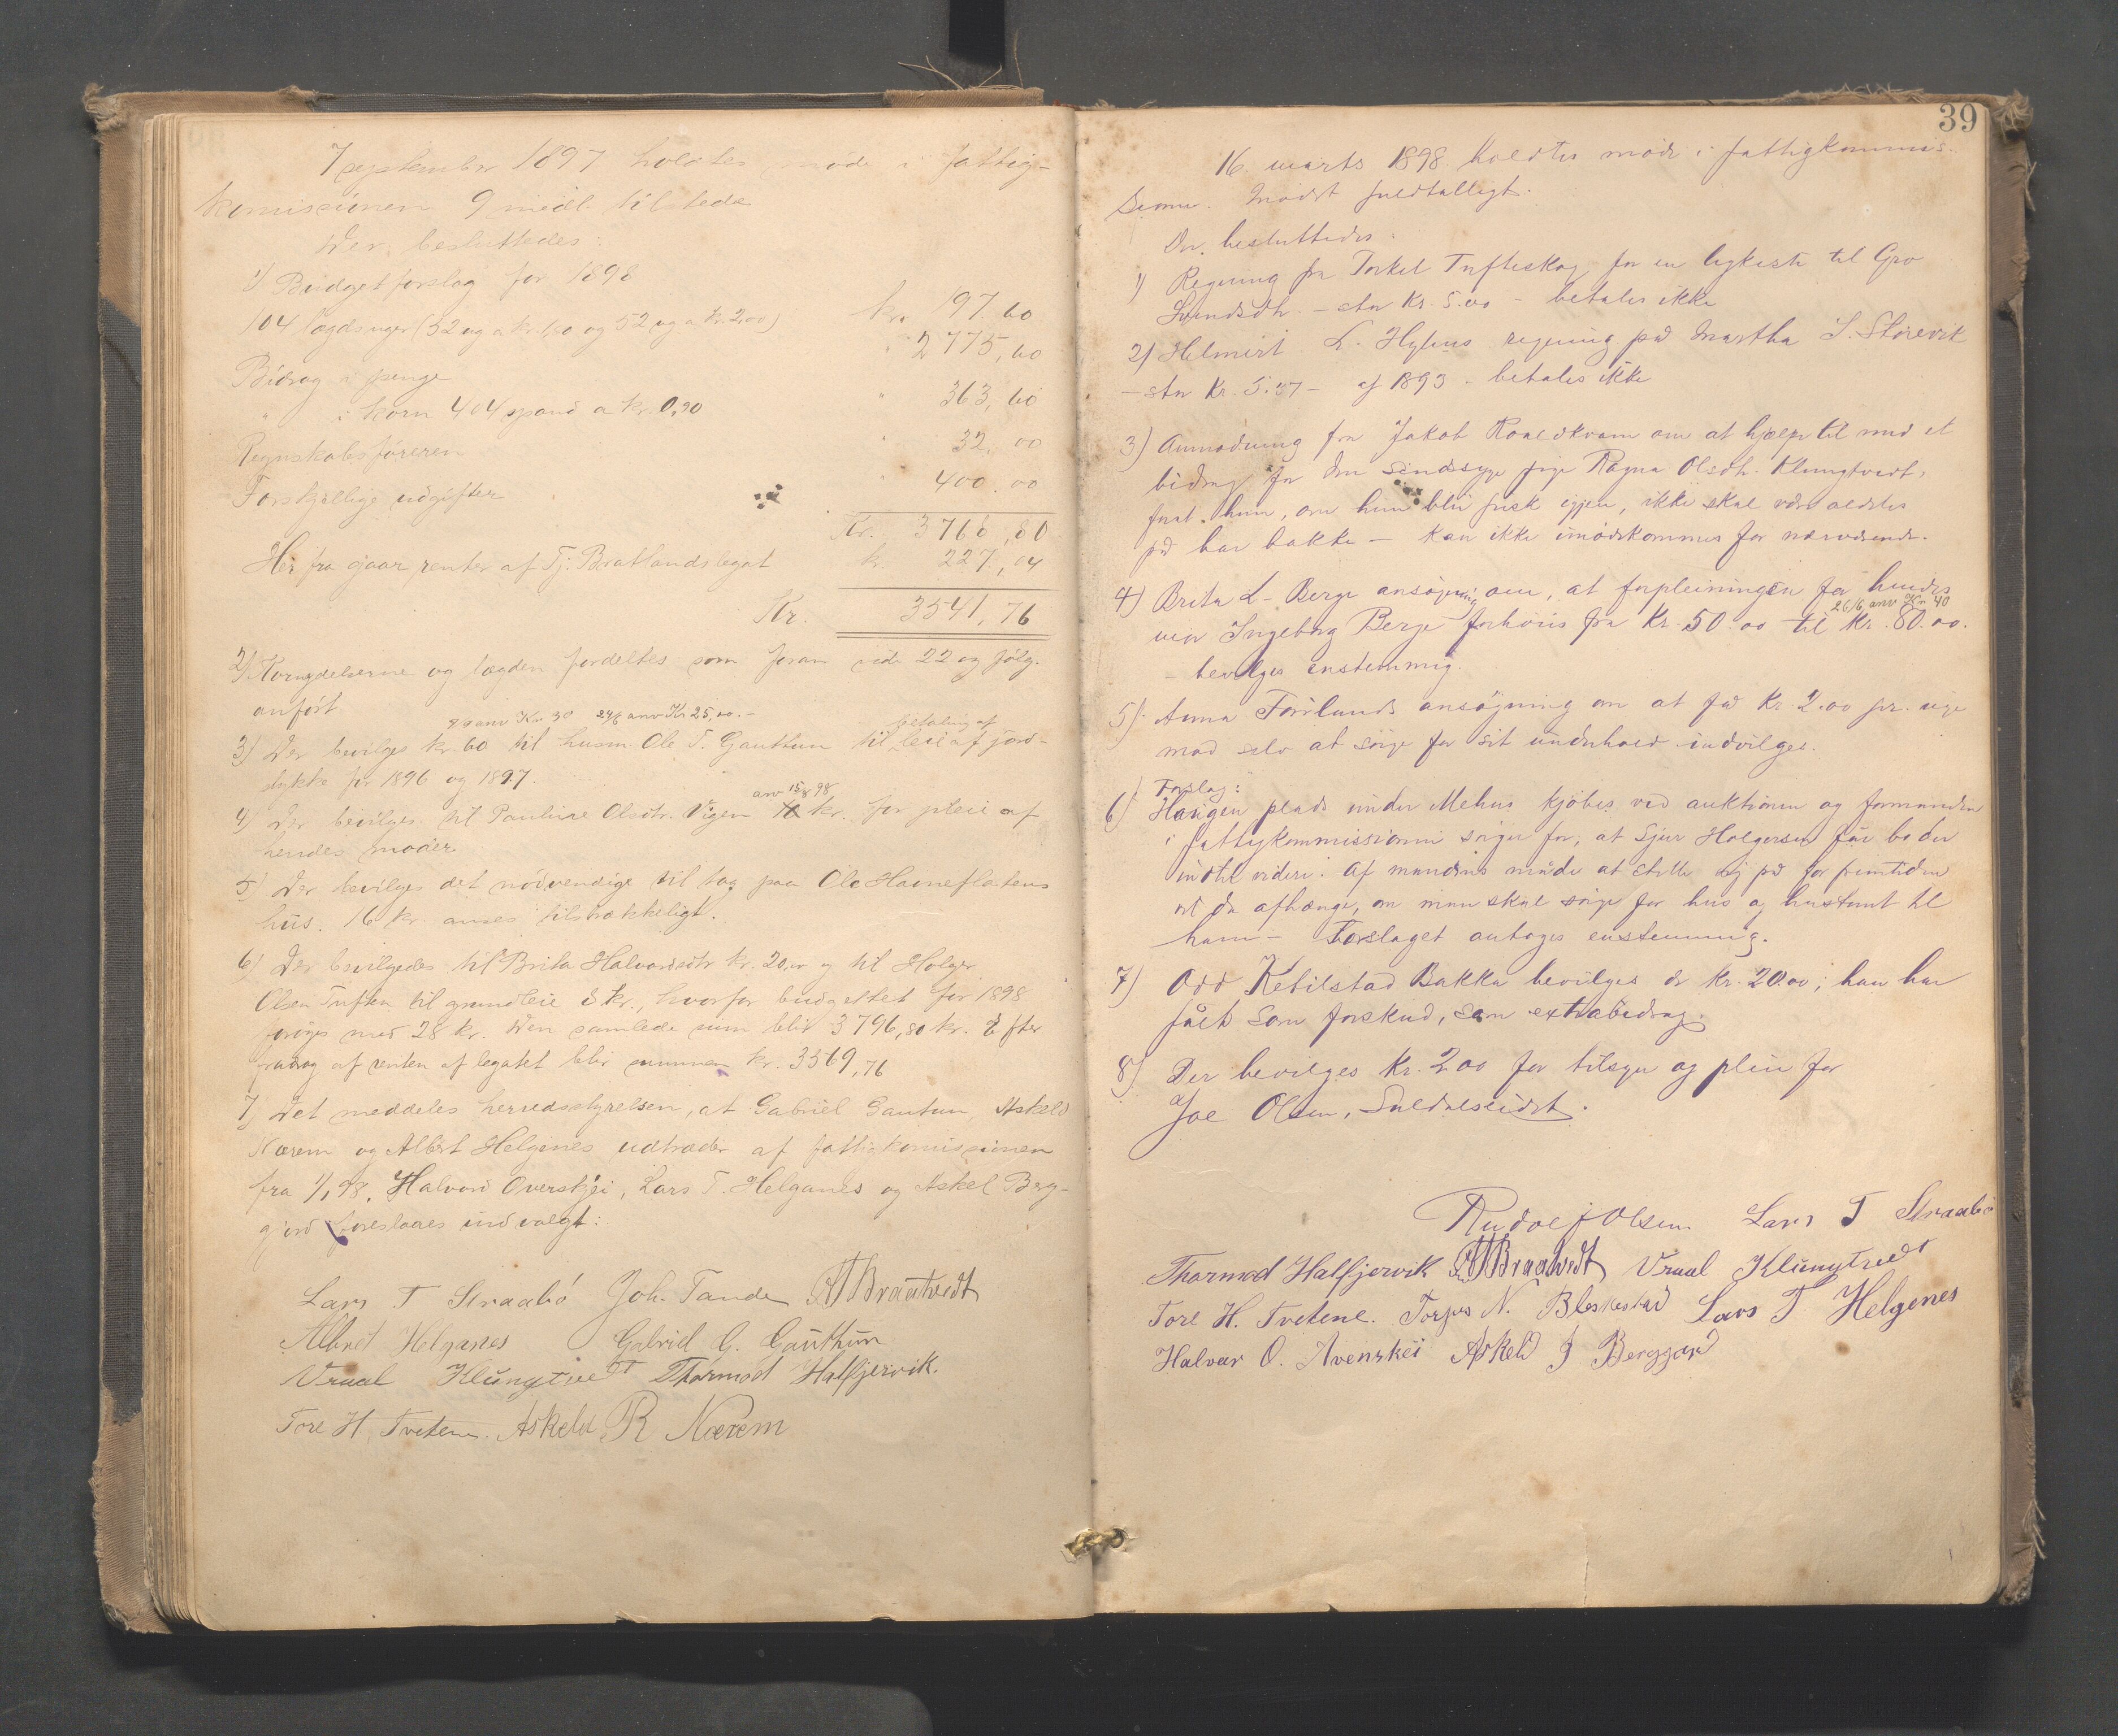 7 september 1897 holdtes møde i fattig-
komissionen 9 medl. tilstede
Der besluttedes:
1) Budgetforslag for 1898
104 lægdsuger (52 ug a kr 1,80 og 52 ug a kr. 2,00) kr. 197.60
Bidrag i penge " 2775,60
" i korn 404 spand a kr. 0,90 " 363,60
Regnskabsføreren " 32,00
Forskjellige udgifter " 400.00
Kr. 3768,80
Her fra gaar renter af Tj. Bratlandslegat kr. 227,04
Kr. 3541,76
2) Korngdelserne og lægden fordeltes som foran side 22 og følg.
anført
anv Kr 30 24/6 anv Kr 25,00.- betaling af
3) Der bevilges kr. 60 til husm. Ole T. Gauthun til leie af jord-
stykke for 1896 og 1897.
anv 15/8 98
4) Der bevilges til Pauline Olsdtr. Vigen kr. for pleie af
hendes moder.
5) Der bevilges det nødvendige til tag paa Ole Havneflatens
hus. 16 kr. anses tilstrækkeligt.
6) Der bevilgedes til Brita Halvordsdtr kr. 20,00 og til Holger
Olsen Tuften til grundleie 8 kr., hvorfor budgettet for 1898
forøges med 28 kr. Den samlede sum blir 3796,80 kr. Efter
fradrag af renten af legatet blir summen kr. 3569,76
7) Det meddeles herredsstyrelsen, at Gabriel Gautun, Askeld
Nærem og Albert Helganes udtræder af fattigkomissionen
fra 1/1 98. Halvor Overskjei, Lars T. Helganes og Askel Berg-
gjerd foreslaaes indvalgt:
Lars T Straabø Joh. Tande Braatvedt
Albret Helganes Gabriel G. Gauthun
Vraal Klungtvedt Thormod Halfjervik.
Tore H. Tvetene. Askeld R Nærem
39
16 marts 1898 holdtes møde i fattigkommis-
sionen. Mødet fuldtalligt.
Der besluttedes:
1) Regning fra Torkel Tufteskog for en ligkiste til Gro
Svendsdtr. - stor Kr. 5.00 - betales ikke
2) Helmert L. Hylens regning på Martha S. Storevik
- stor Kr. 5.37 - af 1893 - betales ikke
3) Anmodning fra Jakob Roaldkvam om at hjelpe til med et
bidrag for den sindssyge pige Ragna Olsdtr. Klungtvedt,
forat hun, om hun blir frisk igjen, ikke skal være aldeles
på bar bakke - kan ikke imødekommes for nærværende.
4) Brita L. Berge ansøgning om, at forpleiningen for hendes
26/6 anv Kr 40
mor Ingeborg Berge forhøies fra Kr. 50.00 til kr. 80.00.
- bevilges enstemmig.
5) Anna Førlands ansøgning om at få Kr 2.00 pr. uge
mod selv at sørge for sit underhold indvilges.
Forslag:
6) Haugen plads under Mehus kjøbes ved auktionen og formanden
i fattigkommissionen sørger for, at Sjur Holgersen får bo der
indtil videre. Af mandens måde at stelle sig på for fremtiden
vil da afhænge, om man skal sørge for hus og husrumt til
ham - Forslaget antoges enstemmig.
7) Odd Ketilstad Bakka bevilges de kr. 20.00; han har
fået som forskud, som extrabidrag.
8) Der bevilges Kr. 2 00 for tilsyn og pleie for
Joe Olsen, Suldalseidet.
Rudolf Olsen Lars T Straabø
Thormod Halfjervik Braatvedt Vraal Klungtvedt
Tore H. Tvetene. Torjus N. Bleskestad Lars T Helgenes
Halvar O. Avenskei Askeld J Berggard